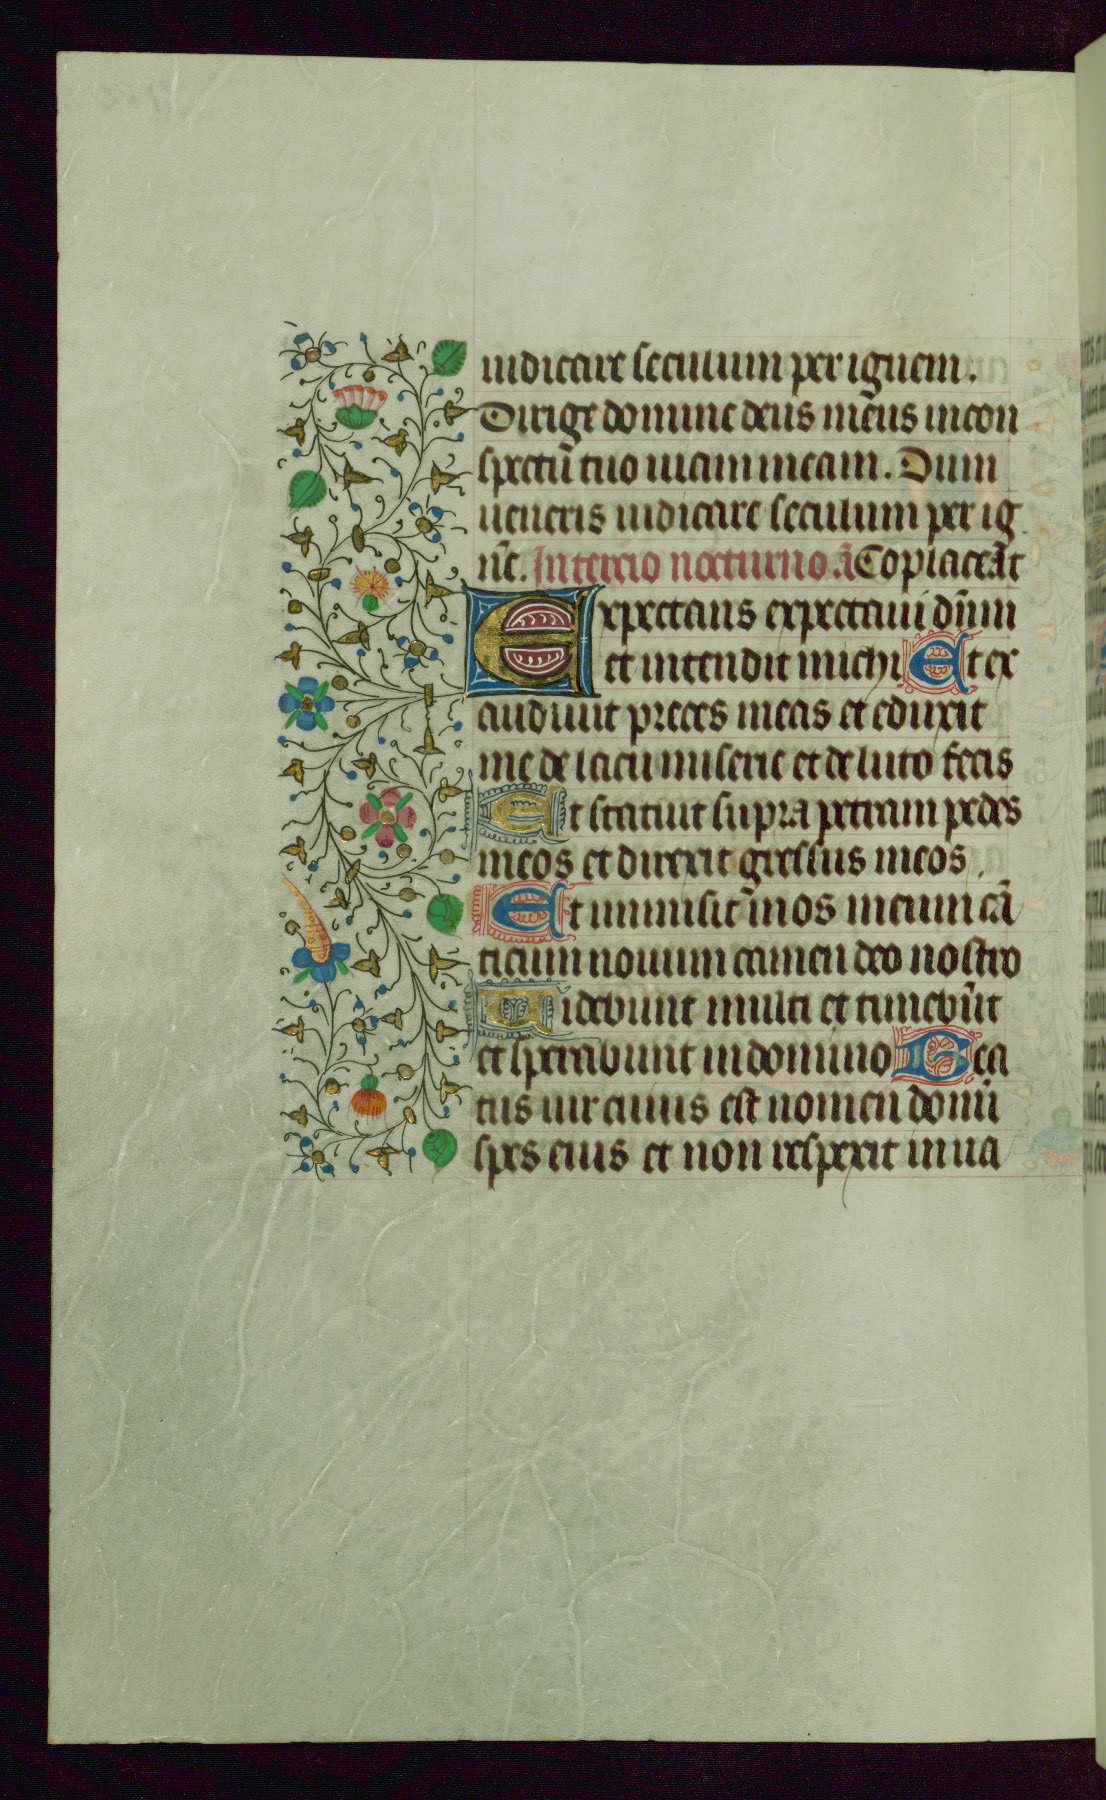 iudicare seculum per ignem.
Dirige domine deus mēus in con
spectū tuo uiam meam. Dum
ueneris iudicare seculum per ig
nē. In tercio nocturno. ā Coplaceāt
Expectans expectaui dn̄m
et intendit michi Et ex
audiuit preces meas et eduxit
me de lacu miserie et de luto fecis
Et statuit supra petram pedes
meos et direxit gressus meos.
Et immisit in os meum cā
ticum nouum carmen deo nostro
Uidebunt multi et timebūt
et sperabunt in domino Bea
tus uir cuius est nomen domī
spes eius et non respexit in ua